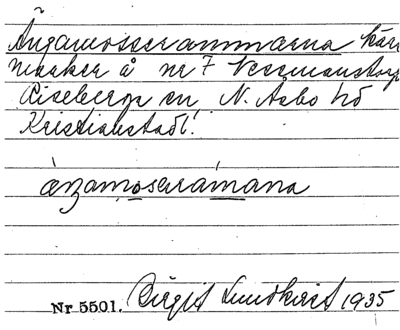 Ängamosserammarna kärr
marker å nr 7 Vessmanstorp
Riseberga sn, N. Åsbo hd
Kristianstads l.
ängamosaråmana
Nr 5501. Birgit Lundkvist 1935